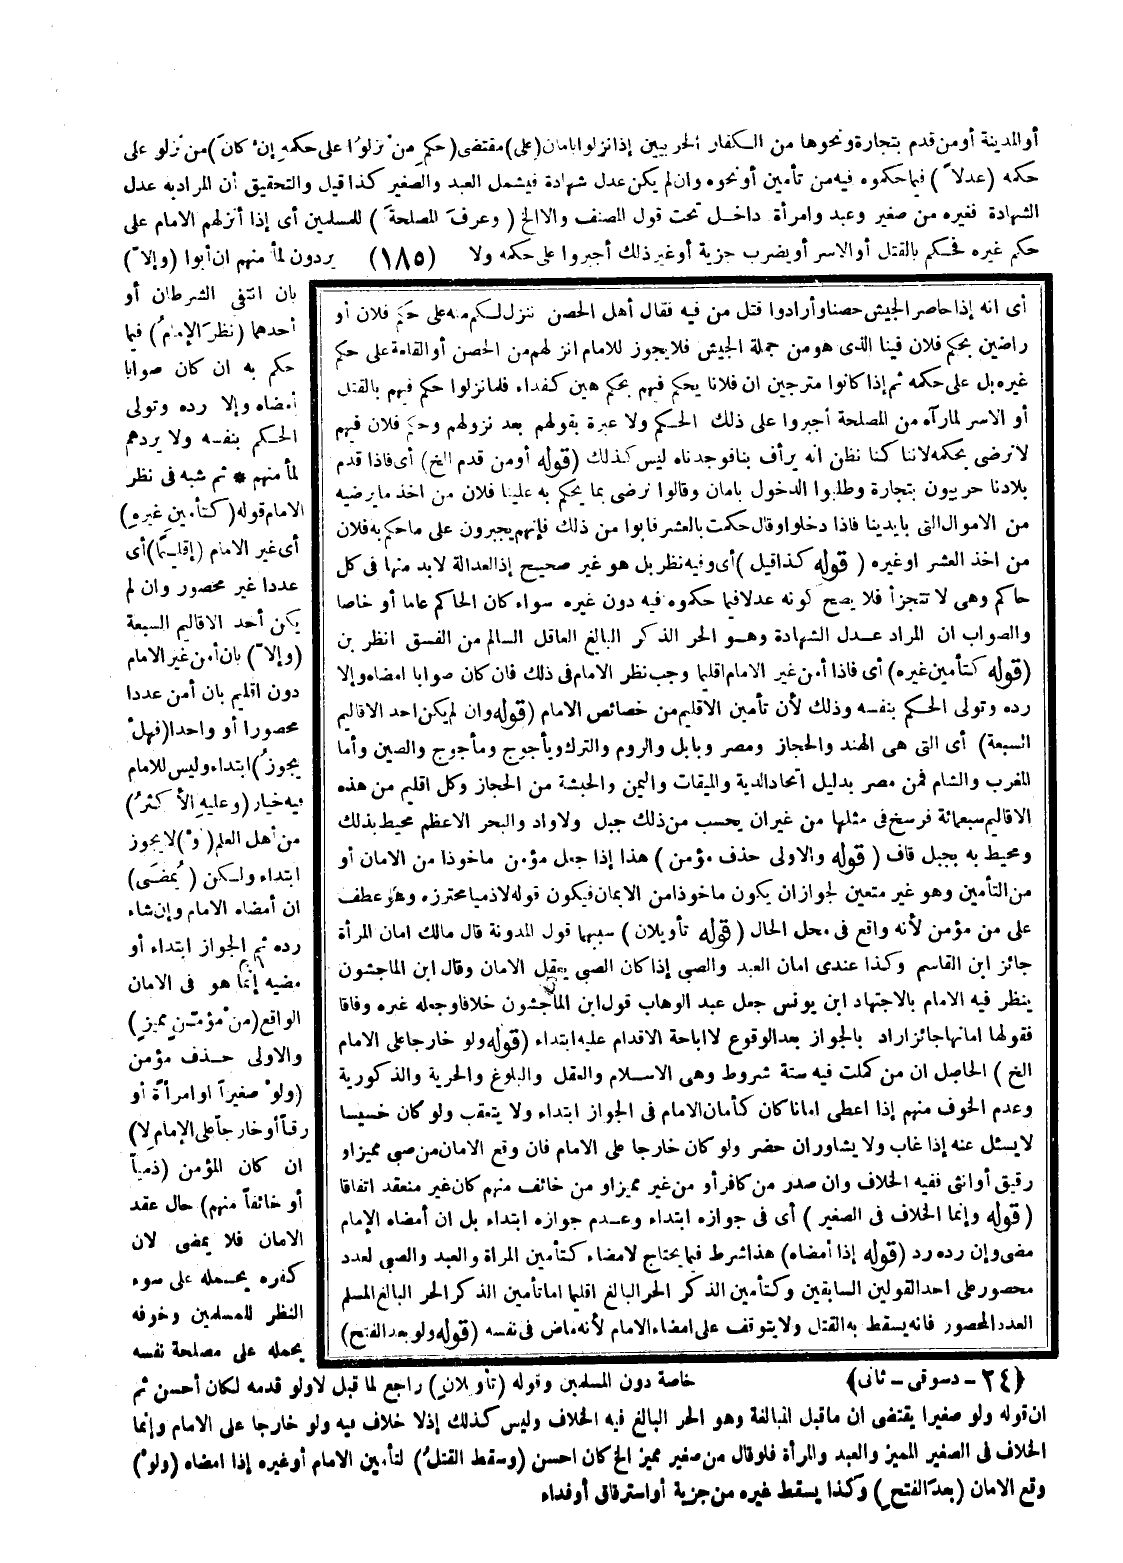 أو المدينة أو من قدم بتجارة ونحوها من الكفار الحربيين إذا نزلوا بامان (على) مقتضى (حكمِ منْ نزلوُا على حكمهِ إنْ كانَ) من نزلو على
حكمه (عدلاً) فيما حكموه فيه من تأمين أو نحوه وان لم يكن عدل شهادة فيشمل العبد والصغير كذا قيل والتحقيق أن المراد به عدل
الشهادة فغيره من صغير وعبد وامرأة داخل تحت قول المصنف والا الخ (وعرفَ المصلحةَ) للمسلمين أى إذا أنزلهم الامام على
حكم غيره فحكم بالقتل أو الاسر أو بضرب جزية أو غير ذلك أجبروا على حكمه ولا (١٨٥) يردون لمأ منهم ان أبوا (وإلاّ)
بان انتفى الشرطان أو
أحدهما (نظرَ الإمامُ) فيما
حكم به ان كان صوابا
أمضاه وإلا رده وتولى
الحكم بنفسه ولا يردهم
لمأ منهم * ثم شبه فى نظر
الامام قوله (كتأمينِ غيرهِ)
أى غير الامام (إقليمًا) أى
عددا غير محصور وان لم
يكن أحد الاقاليم السبعة
(وإلاّ) بان أمن غير الامام
دون اقليم بان أمن عددا
محصورا أو واحدا (فهلْ
يجوزُ) ابتداء وليس للامام
فيه خيار (وعليهِ الأكثرُ)
من أهل العلم (و) لا يجوز
ابتداء ولكن (يُمضَى)
ان أمضاه الامام وإن شاء
رده ثم الجواز ابتداء أو
مضيه إنما هو فى الامان
الواقع (منْ مؤمّنٍ مميزٍ)
والاولى حذف مؤمن
(ولوْ صغيراً او امرأةً أو
رقاً أو خارجاً على الإمامِ لا)
ان كان المؤمن (ذمياً
أو خائفاً منهم) حال عقد
الامان فلا يمضى لان
كفره يحمله على سوء
النظر للمسلمين وخوفه
يحمله على مصلحة نفسه
أى انه إذا حاصر الجيش حصنا وأرادوا قتل من فيه فقال أهل الحصن ننزل لكم منه على حكم فلان أو
راضين بحكم فلان فينا الذى هو من جملة الجيش فلا يجوز للامام انزلهم من الحصن أو القلعة على حكم
غيره بل على حكمه ثم إذا كانوا مترجين ان فلانا يحكم فيهم بحكم هين كفداء فلما نزلوا حكم فيهم بالقتل
أو الاسر لما رآه من المصلحة أجبروا على ذلك الحكم ولا عبرة بقولهم بعد نزولهم وحكم فلان فيهم
لا نرضى بحكمه لاننا كنا نظن انه يرأف بنا فوجدناه ليس كذلك (قوله أو من قدم الخ) أى فاذا قدم
بلادنا حربيون بتجارة وطلبوا الدخول بامان وقالوا نرضى بما يحكم به علينا فلان من اخذ ما يرضيه
من الاموال التى بايدينا فاذا دخلوا وقال حكمت بالعشر فابوا من ذلك فإنهم يجبرون على ما حكم به فلان
من اخذ العشر او غيره (قوله كذا قيل) أى وفيه نظر بل هو غير صحيح إذ العدالة لابد منها فى كل
حاكم وهى لا تتجزأ فلا يصح كونه عدلا فيما حكموه فيه دون غيره سواء كان الحاكم عاما أو خاصا
والصواب ان المراد عدل الشهادة وهو الحر الذكر البالغ العاقل السالم من الفسق انظر بن
(قوله كتأمين غيره) أى فاذا أمن غير الامام اقليما وجب نظر الامام فى ذلك فان كان صوابا امضاه وإلا
رده وتولى الحكم بنفسه وذلك لأن تأمين الاقليم من خصائص الامام (قوله وان لم يكن احد الاقاليم
السبعة) أى التى هى الهند والحجاز ومصر وبابل والروم والترك ويأجوج ومأجوج والصين وأما
المغرب والشام فمن مصر بدليل اتحاد الدية والميقات واليمن والحبشة من الحجاز وكل اقليم من هذه
الاقاليم سبعمائة فرسخ فى مثلها من غير ان يحسب من ذلك جبل ولا واد والبحر الاعظم محيط بذلك
ومحيط به بجبل قاف (قوله والاولى حذف مؤمن) هذا إذا جعل مؤمن ماخوذا من الامان أو
من التأمين وهو غير متعين لجواز ان يكون ماخوذا من الايمان فيكون قوله لا ذميا محترزه وهو عطف
على من مؤمن لأنه واقع فى محل الحال (قوله تأويلان) سببها قول المدونة قال مالك امان المرأة
جائز ابن القاسم وكذا عندى امان العبد والصبي إذا كان الصبي يعقل الامان وقال ابن الماجشون
ينظر فيه الامام بالاجتهاد ابن يونس جعل عبد الوهاب قول ابن الماجشون خلافا وجعله غيره وفاقا
فقولها امانها جائز اراد بالجواز بعد الوقوع لا اباحة الاقدام عليه ابتداء (قوله ولو خارجا على الامام
الخ) الحاصل ان من كملت فيه ستة شروط وهى الاسلام والعقل والبلوغ والحرية والذكورية
وعدم الخوف منهم إذا اعطى امانا كان كأمان الامام فى الجواز ابتداء ولا يتعقب ولو كان خسيسا
لا يسئل عنه إذا غاب ولا يشاور ان حضر ولو كان خارجا على الامام فان وقع الامان من صبى مميز او
رقيق أو انثى ففيه الخلاف وان صدر من كافر أو من غير مميز او من خائف منهم كان غير منعقد اتفاقا
(قوله وإنما الخلاف فى الصغير) أى فى جوازه ابتداء وعدم جوازه ابتداء بل ان أمضاه الإمام
مضى وإن رده رد (قوله إذا أمضاه) هذا شرط فيما يحتاج لامضاء كتأمين المراة والعبد والصبي لعدد
محصور على احد القولين السابقين وكتأمين الذكر الحر البالغ اقليما اما تأمين الذكر الحر البالغ المسلم
العدد المحصور فانه يسقط به القتل ولا يتوقف على امضاء الامام لأنه ماض فى نفسه (قوله ولو بعد الفتح)
(٢٤ - دسوقى - ثانى) خاصة دون المسلمين وقوله (تأويلانِ) راجع لما قبل لا ولو قدمه لكان أحسن ثم
ان قوله ولو صغيرا يقتضى ان ماقبل المبالغة وهو الحر البالغ فيه الخلاف وليس كذلك إذ لا خلاف فيه ولو خارجا على الامام وإنما
الخلاف فى الصغير المميز والعبد والمرأة فلو قال من صغير مميز الخ كان احسن (وسقط القتلُ) لتأمين الامام أو غيره إذا امضاه (ولوْ)
وقع الامان (بعدَ الفتحِ) وكذا يسقط غيره من جزية أو استرقاق أو فداء